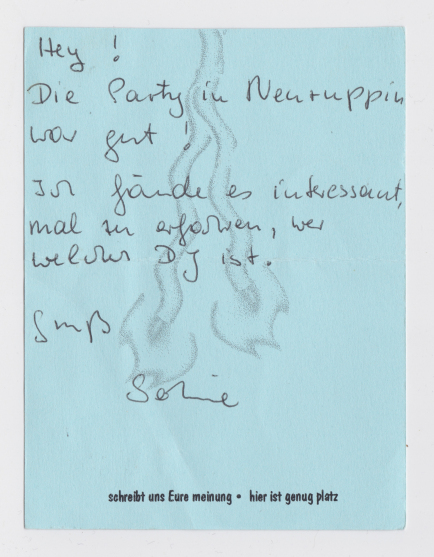 Hey !
Die Party in Neuruppin
war gut !
Ich fände es interessant,
mal zu erfahren, wer
welcher DJ ist.
Gruß
schreibt uns Eure meinung • hier ist genug platz